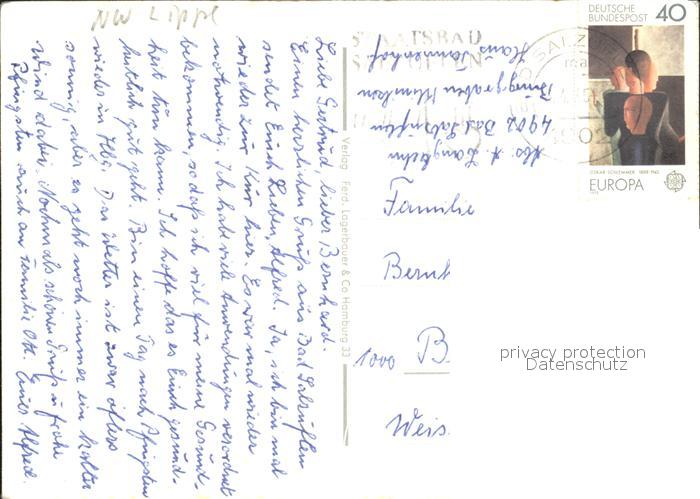 NW Lippe
Liebe Gertrud, lieber Bernhard.
Einen herzlichen Gruß aus Bad Salzuflen
sendet Euch Lieben Alfred. Ja, ich bin mal
wieder zur Kur hier. Es war mal wieder
notwendig. Ich habe viele Anwendungen verordnet
bekommen, so daß ich viel für meine Gesund-
heit tun kann. Ich hoffe das es Euch gesund-
heitlich gut geht. Bin einen Tag nach Pfingsten
wieder in Hbg. Das Wetter ist zwar
sonnig, aber es geht noch immer ein kalter
Wind dabei. Nochmals schönen Gruß u. frohe
Pfingsten auch an Familie Ott. Euer Alfred.
Verlag Ferd. Lagerbauer & Co Hamburg 33
STAATSBAD
Abs. A.
4902 Bad Salzuflen
Haus Tannenhof
DEUTSCHE
BUNDESPOST
40
OSKAR SCHLEMMER 1888-1943
EUROPA
Familie
Bernt
1000 B
Weis
privacy protection
Datenschutz